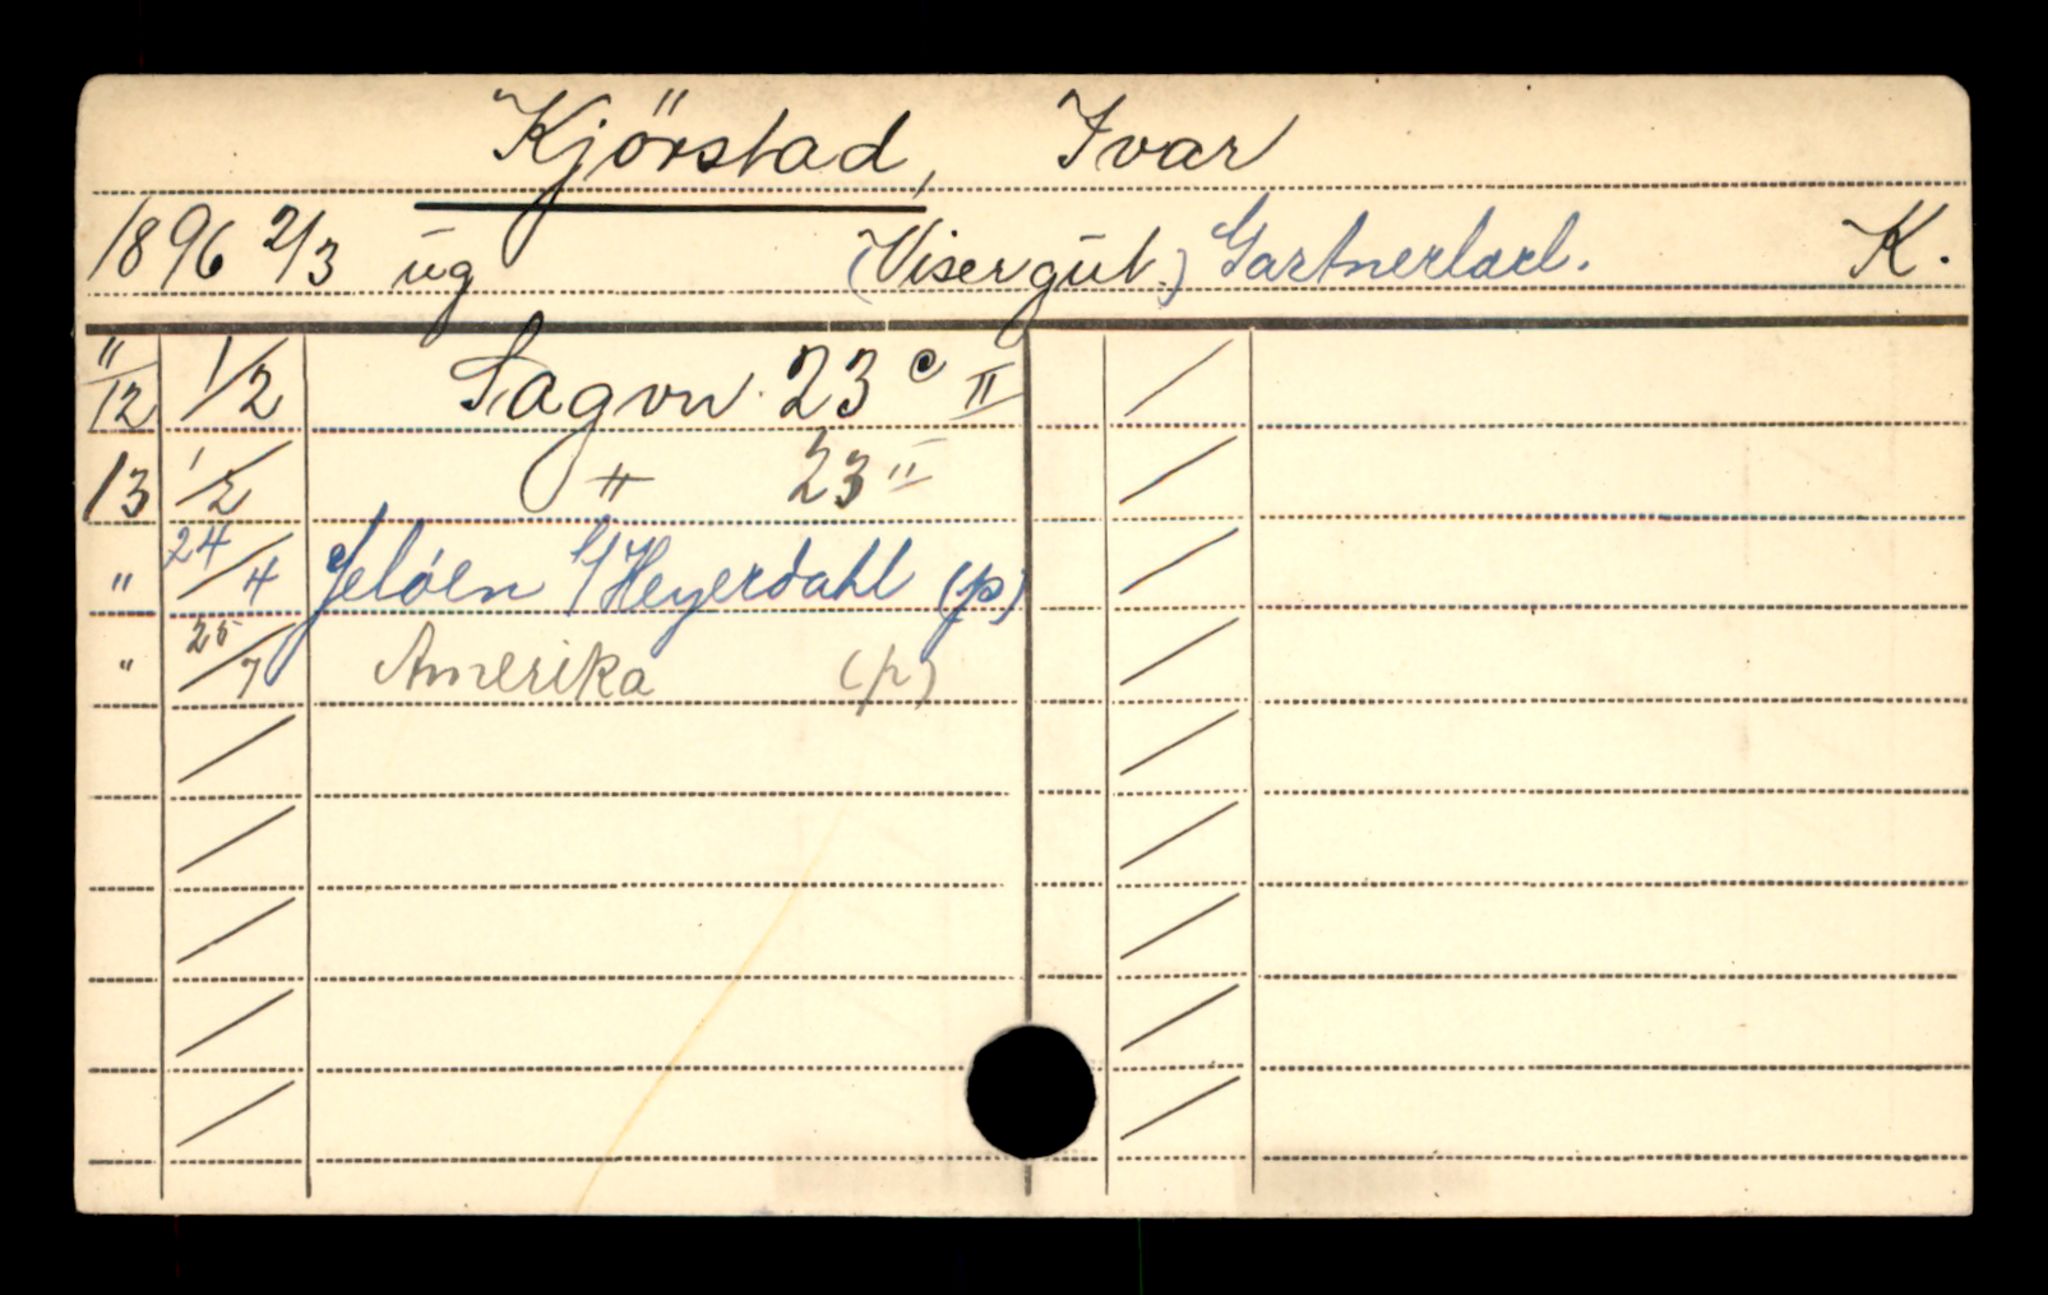 Kjörstad, Ivar
1896 2/3 ug (Visergut) Gartnerlærl. K.
"/12 1/2 Sagvn. 23 c II
13 1/2 " 23 II
" 24/4 Jeløen G/Heyerdahl (p)
" 25/7 Amerika (p)